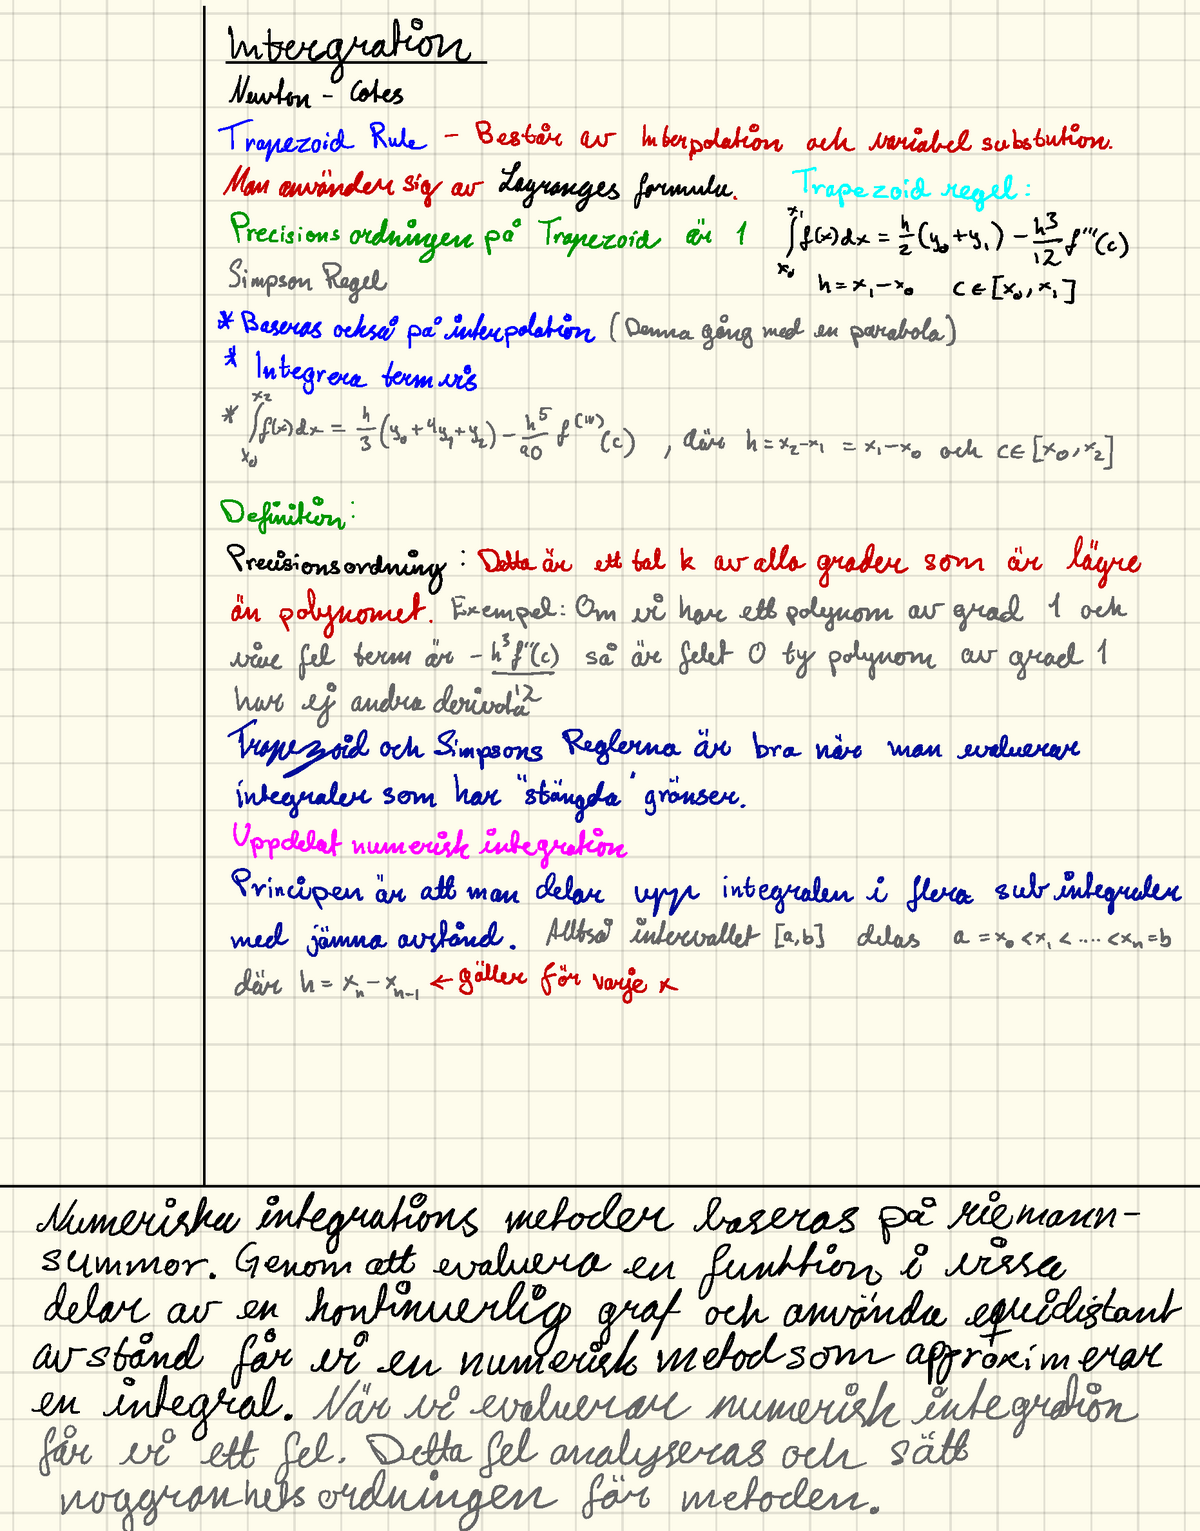 Intergration
Newton - Cotes
Trapezoid Rule - Består av Interpolation och variabel substution.
Man använder sig av Lagranges formula. Trapezoid regel:
Precisions ordningen på Trapezoid är 1 ∫_{x₀}^{x₁} f(x)dx = h/2 (y₀+y₁) - h³/12 f'''(c)
Simpson Regel h = x₁-x₀ c∈[x₀,x₁]
* Baseras också på interpolation (Denna gång med en parabola)
* Integrera termvis
* ∫_{x₀}^{x₂} f(x)dx = h/3 (y₀+4y₁+y₂) - h⁵/90 f^(iv)(c) , där h=x₂-x₁ = x₁-x₀ och c∈[x₀,x₂]
Definition:
Precisionsordning : Detta är ett tal k av alla grader som är lägre
än polynomet. Exempel: Om vi har ett polynom av grad 1 och
våre fel term är - h³f''(c)/12 så är felet 0 ty polynom av grad 1
har ej andra derivata
Trapezoid och Simpsons Reglerna är bra när man evaluerar
integraler som har "stängda" gränser.
Uppdelat numerisk integration
Principen är att man delar upp integralen i flera sub integraler
med jämna avstånd. Alltså intervallet [a,b] delas a = x₀ < x₁ < .... < xₙ = b
där h = xₙ - xₙ₋₁ ← gäller för varje x
Numeriska integrations metoder baseras på riemann-
summor. Genom att evaluera en funktion i vissa
delar av en kontinuerlig graf och använda equidistant
avstånd får vi en numerisk metod som approximerar
en integral. När vi evaluerar numerisk integration
får vi ett fel. Detta fel analyseras och sätt
noggranhets ordningen för metoden.